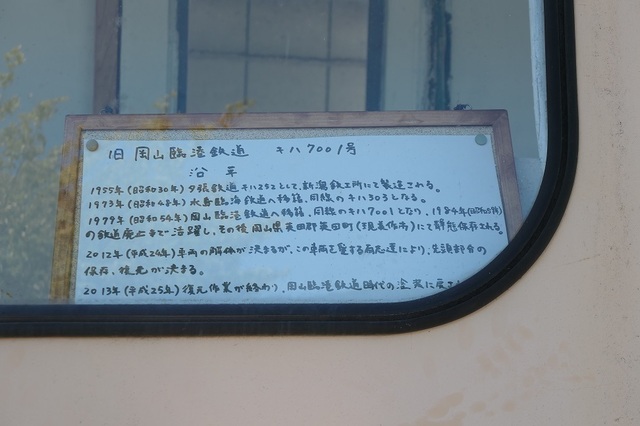 旧 岡山臨港鉄道 キハ7001号
沿革
1955年(昭和30年)夕張鉄道キハ252として、新潟鉄工所にて製造される。
1973年(昭和48年)水島臨海鉄道へ移籍。同線のキハ303となる。
1979年(昭和54年)岡山臨港鉄道へ移籍。同線のキハ7001となり、1984年(昭和59年)
の鉄道廃止まで活躍し、その後岡山県英田郡英田町(現美作市)にて静態保存される。
2012年(平成24年)車両の解体が決まるが、この車両を愛する有志達により、先頭部分の
保存、復元が決まる。
2013年(平成25年)復元作業が終わり、岡山臨港鉄道時代の塗装に戻さ